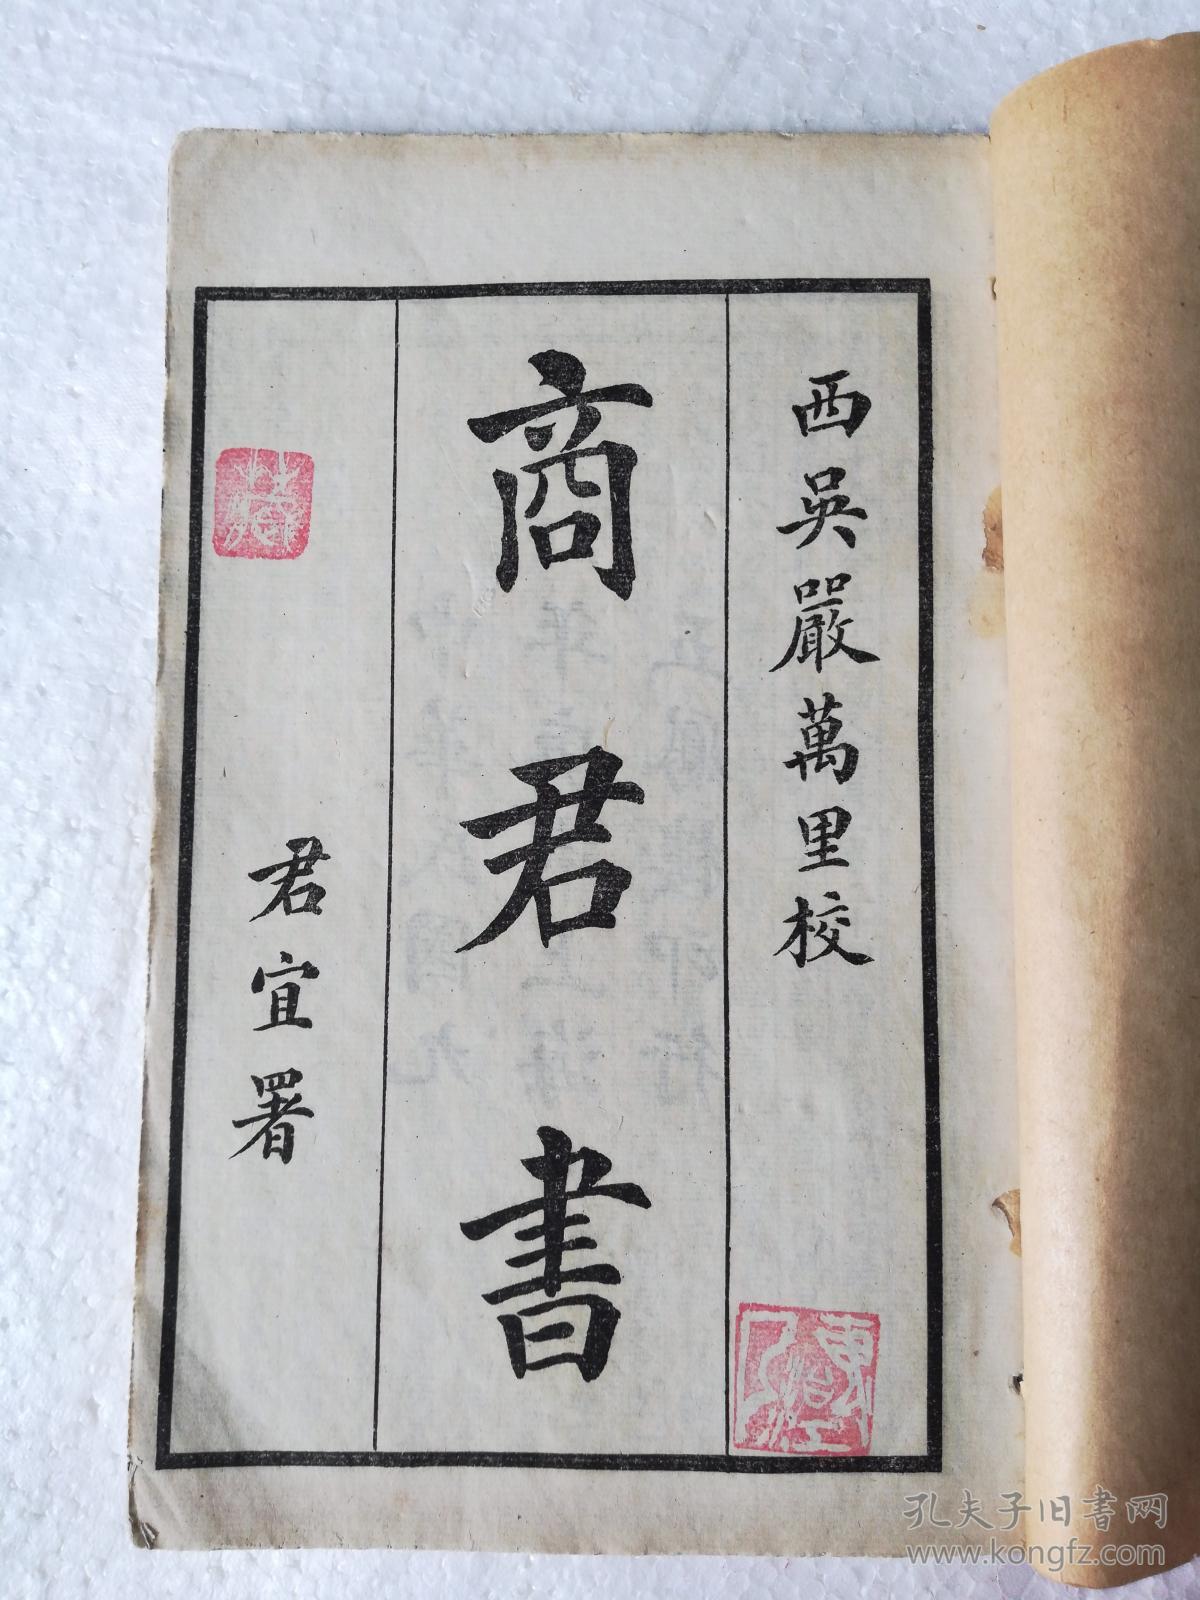 西吳嚴萬里校
商君書
君宜署
孔夫子旧書网
www.kongfz.com